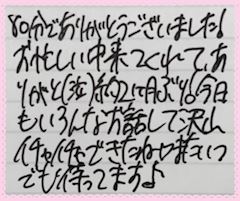 80分でありがとうございました!
お忙しい中来てくれて、あ
りがと(泣)約2ヶ月ぶり。今日
もいろんな方話して沢山
イチャイチャできたねいつ
でも待ってますよ